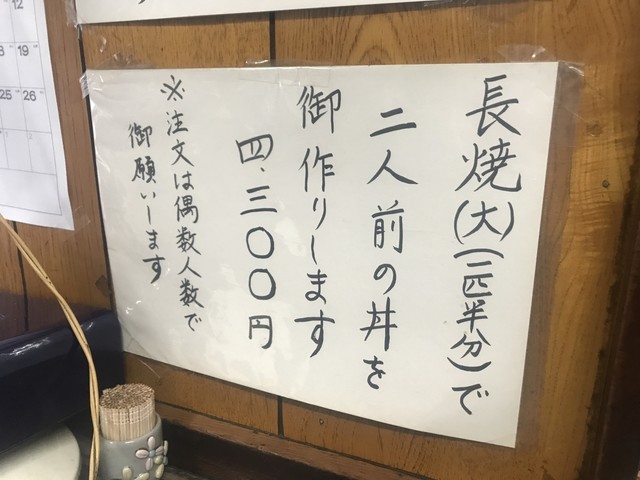 長焼(大)(一匹半分)で
二人前の丼を
御作りします
四、三〇〇円
※注文は偶数人数で
御願いします
12
18 19
25 26